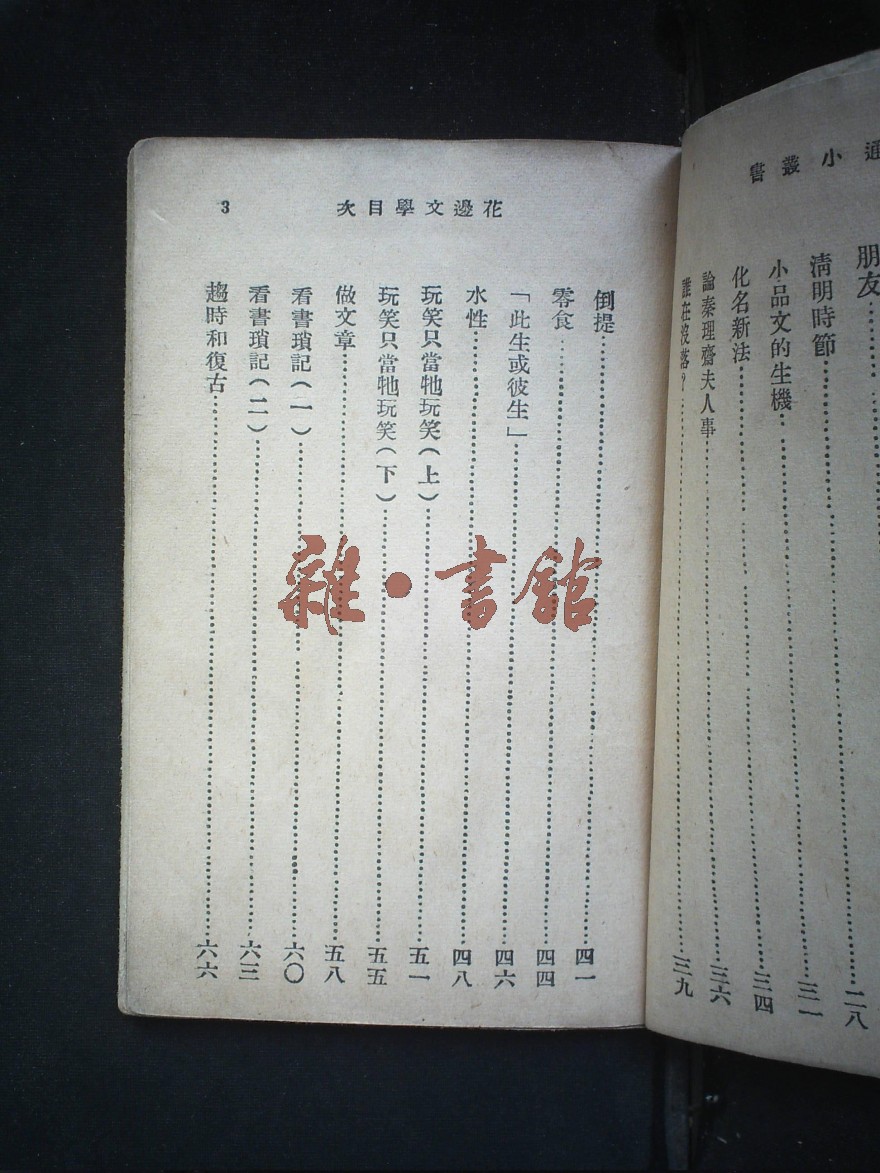 通小叢書
朋友……二八
清明時節……三一
小品文的生機……三四
化名新法……三六
論秦理齋夫人事……三九
誰在沒落？……
花邊文學目次 3
倒提……四一
零食……四四
「此生或彼生」……四六
水性……四八
玩笑只當牠玩笑（上）……五一
玩笑只當牠玩笑（下）……五五
做文章……五八
看書瑣記（一）……六〇
看書瑣記（二）……六三
趨時和復古……六六
雜·書館